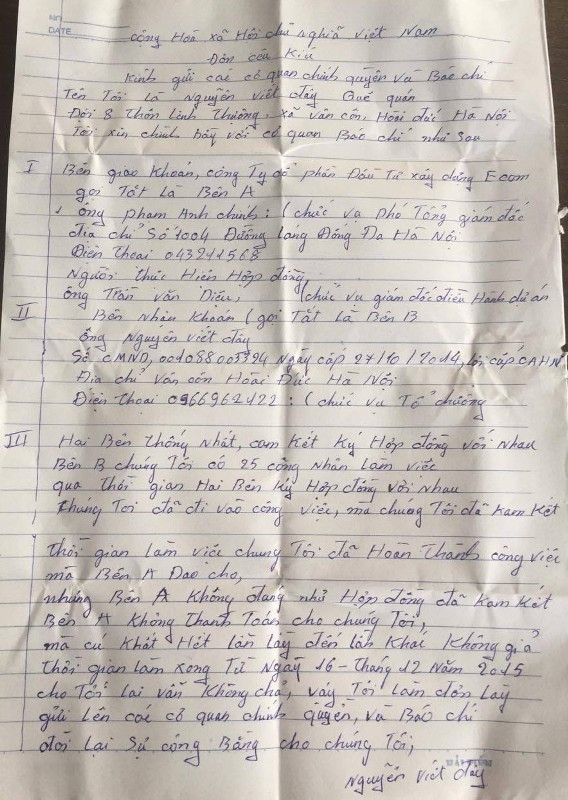 DATE
công Hoà xã Hội chủ nghĩa việt Nam
Đơn cêu Kiú
Kính gửi các cơ quan chính quyền và Báo chí
Tên Tôi Là Nguyễn viết đây Quê quán
Đội 8 Thôn Linh Thượng, xã vân côn, Hoài đức Hà Nội
Tôi xin chình bầy với cơ quan Báo chí như sau
I Bên giao Khoán, công Ty cổ phần Đầu Tư xây dựng Ecom
gọi Tắt Là Bên A
ông phạm Anh chinh: (chức vụ phó Tổng giám đốc
địa chỉ Số 1004 Đường Láng Đống Đa Hà Nội
Điện Thoại 043211568
Người Thức Hiện Hợp đồng
ông Trần văn Diệu, (chức vụ giám đốc điều Hành dự án
II Bên Nhận Khoán (gọi Tắt Là Bên B
ông Nguyễn viết đây
Số CMND, 001088003394 Ngày cấp 27/10/2014, cấp CAHN
Địa chỉ vân côn Hoài Đức Hà Nội
Điện Thoại 0966962422: (chức vụ Tổ chưởng
III Hai Bên Thống Nhất, cam Kết Ký Hợp đồng với Nhau
Bên B chúng Tôi có 25 công Nhân Làm việc
qua Thời gian Hai Bên Ký Hợp đồng với Nhau
chúng Tôi đã đi vào công việc, mà chúng Tôi đã Kam Kết
Thời gian Làm việc chúng Tôi đã Hoàn Thành công việc
mà Bên A Đao cho,
nhưng Bên A Không đúng như Hợp đồng đã Kam Kết
Bên A Không Thanh Toán cho chúng Tôi,
mà cứ Khất Hết Lần Lày đến Lần Khác Không giả
Thời gian Làm xong Từ Ngày 16 - Tháng 12 Năm 2015
cho Tới Lai vẫn Không chả, vậy Tôi Làm đơn Lày
gửi Lên các cơ quan chính quyền, và Báo chí
đòi Lại Sự công Bằng cho chúng Tôi,
Nguyễn viết đây